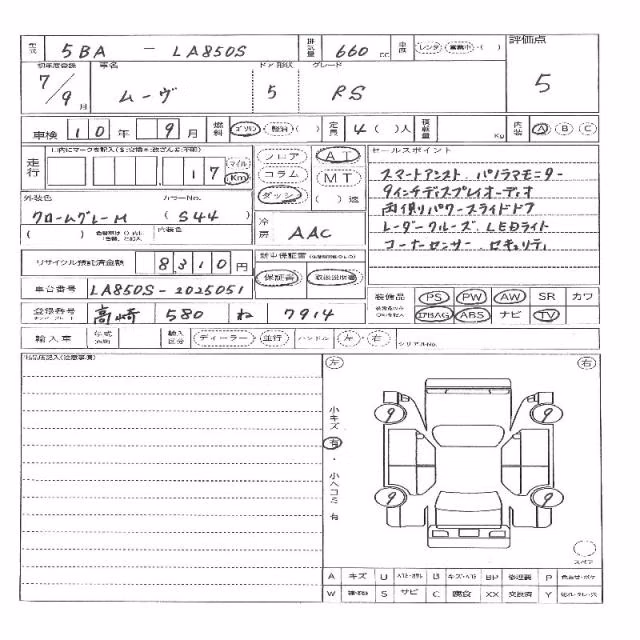 型式 5BA - LA850S 排気量 660 cc 車歴 レンタ 営業中 ・( ) 評価点
初年度登録 車名 ドア形状 グレード 5
7/9月 ムーヴ 5 RS
車検 10年 9月 燃料 ガソリン・軽油・( ) 定員 4( )人 積載量 Kg 内装 A B C
走行 17 マイル Km フロア コラム ダッシュ AT MT ( )速 セールスポイント
スマートアシスト パノラマモニター
9インチディスプレイオーディオ
両側パワースライドドア
レーダークルーズ LEDライト
コーナーセンサー セキュリティ
外装色 カラーNo. 冷房 AAC
クロームグレーM (S44)
( ) 内装色
リサイクル預託済金額 8310円 保証書 取扱説明書
車台番号 LA850S-2025051 装備品 PS PW AW SR カワ
登録番号 高崎 580 ね 7914 AIRBAG ABS ナビ TV
輸入車 年式 輸入区分 ディーラー・並行 ハンドル 左・右 シリアルNo.
左 右
小キズ 有・小ヘコミ 有
9 9
9 9
スペア
A キズ U B キズ・ヘコミ P 色あせ・ボケ
W S サビ C 腐食 XX 交換済 Y